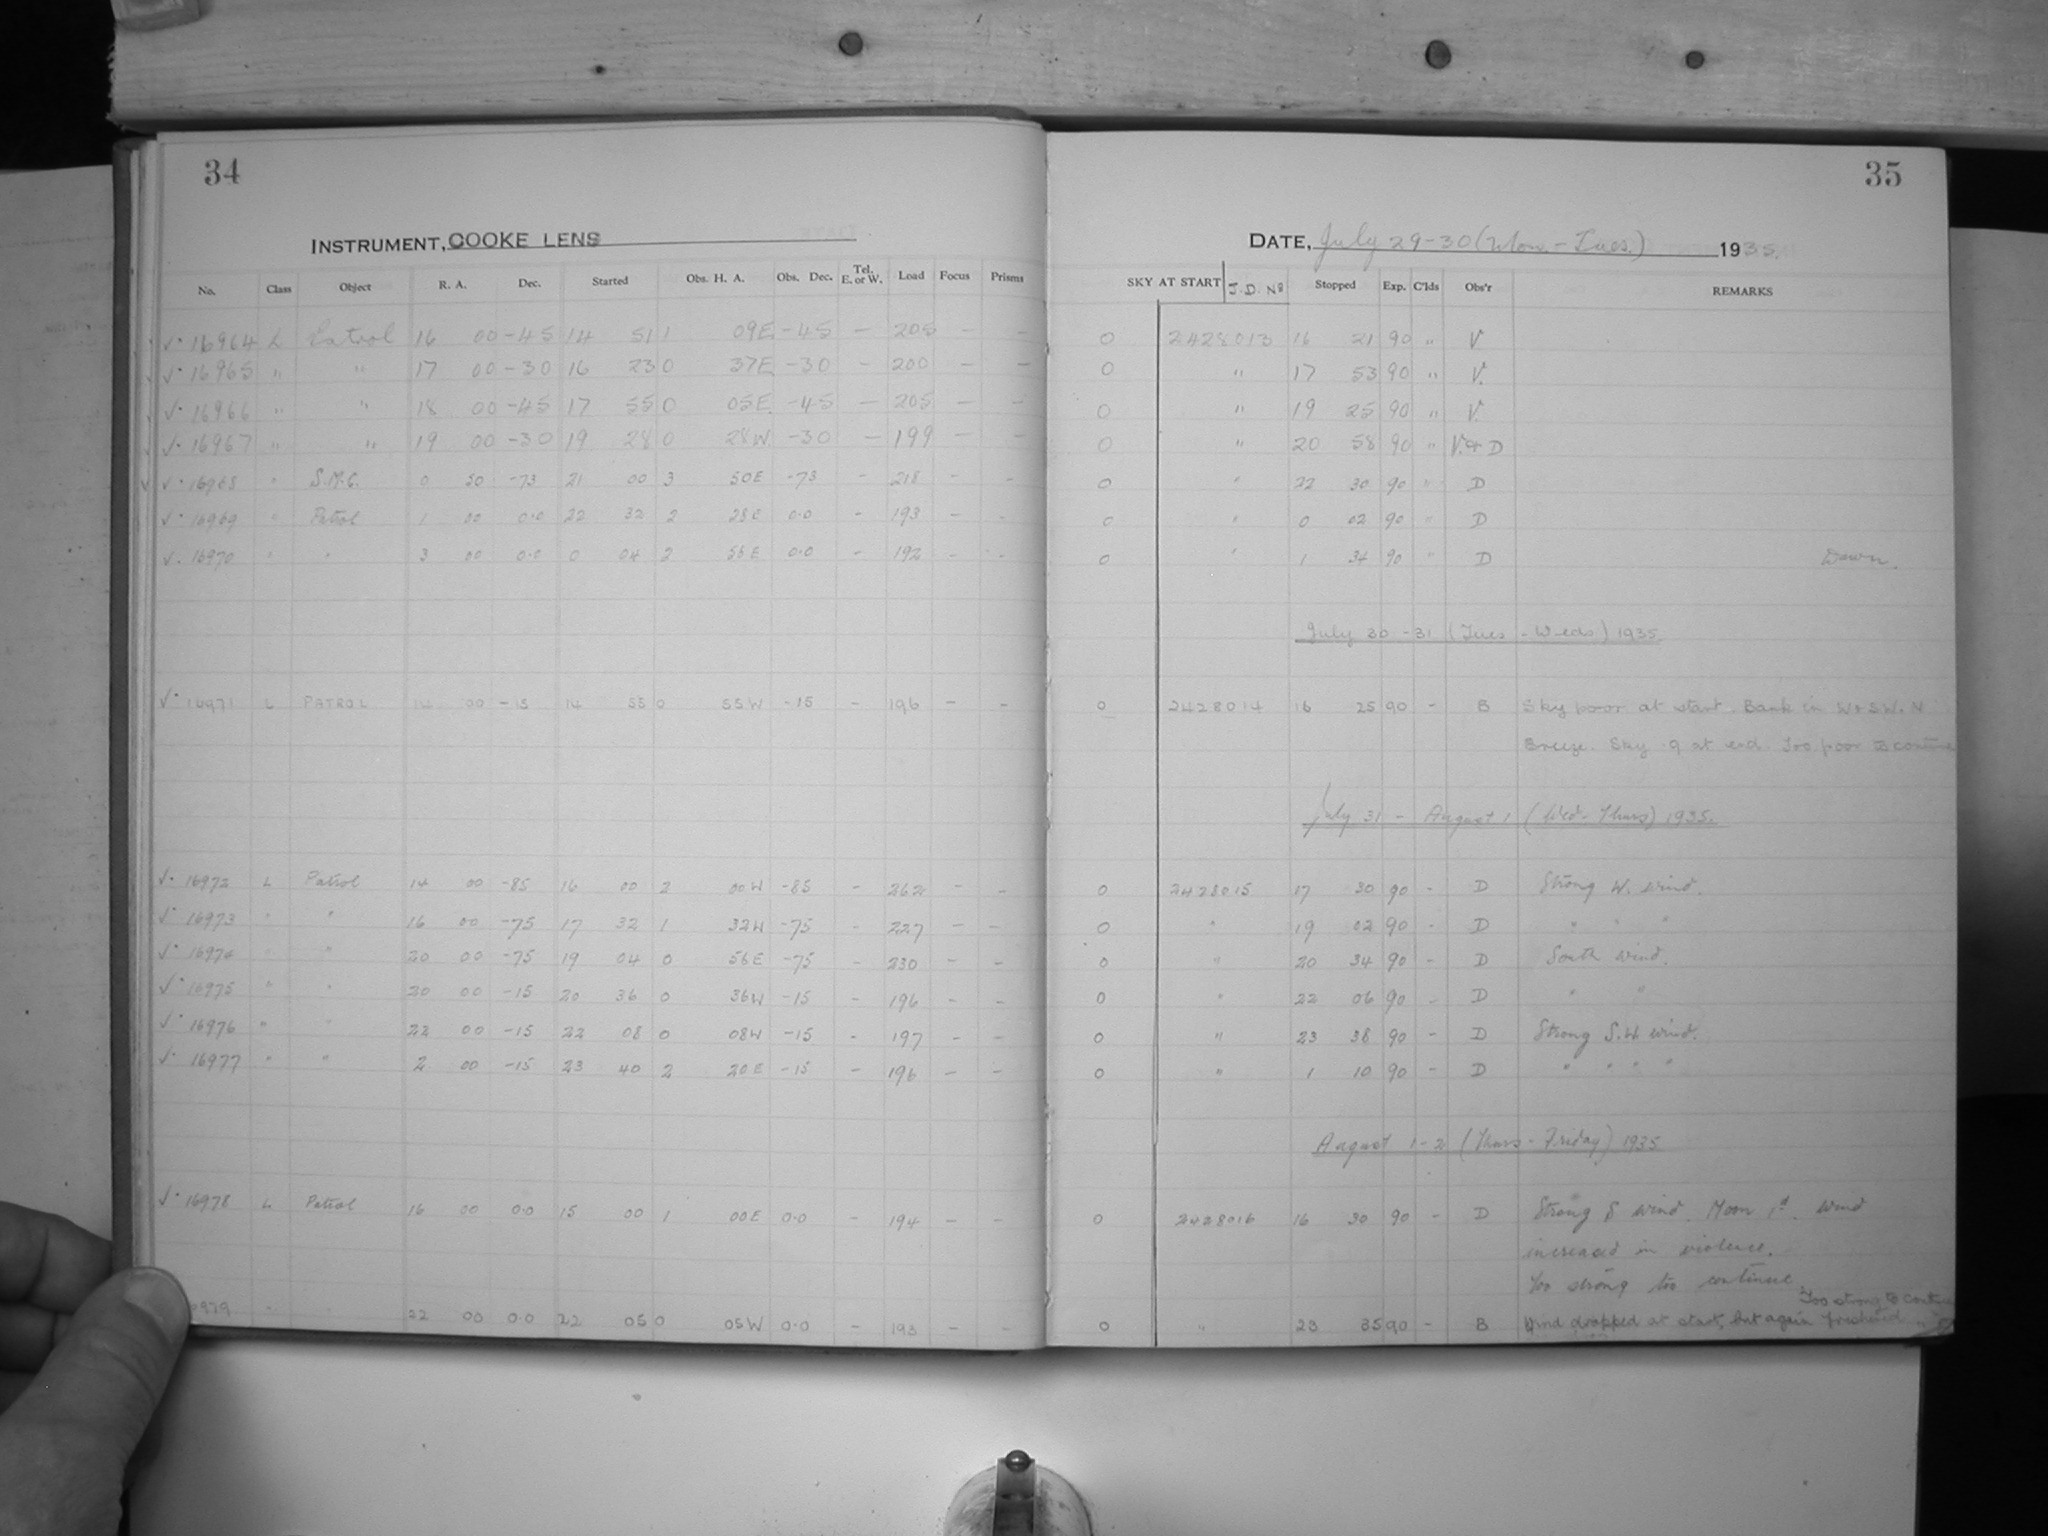 34
INSTRUMENT, COOKE LENS
No. Class Object R. A. Dec. Started Obs. H. A. Obs. Dec. Tel. E. or W. Load Focus Prisms
√· 16964 L Patrol 16 00 -45 14 51 1 09E -45 — 205 — —
√· 16965 " " 17 00 -30 16 23 0 37E -30 — 200 — —
√· 16966 " " 18 00 -45 17 55 0 05E -45 — 205 — —
√· 16967 " " 19 00 -30 19 28 0 28W -30 — 199 — —
√· 16968 " S.M.C. 0 50 -73 21 00 3 50E -73 - 218 - -
√· 16969 " Patrol 1 00 0.0 22 32 2 28E 0.0 - 193 - -
√· 16970 " " 3 00 0.0 0 04 2 56E 0.0 - 192 - -
√· 16971 L PATROL 14 00 -15 14 55 0 55W -15 - 196 - -
√· 16972 L Patrol 14 00 -85 16 00 2 00W -85 - 262 - -
√· 16973 " " 16 00 -75 17 32 1 32W -75 - 227 - -
√· 16974 " " 20 00 -75 19 04 0 56E -75 - 230 - -
√· 16975 " " 20 00 -15 20 36 0 36W -15 - 196 - -
√· 16976 " " 22 00 -15 22 08 0 08W -15 - 197 - -
√· 16977 " " 2 00 -15 23 40 2 20E -15 - 196 - -
√· 16978 L Patrol 16 00 0.0 15 00 1 00E 0.0 - 194 - -
6979 " " 22 00 0.0 22 05 0 05W 0.0 - 193 - -
35
DATE, July 29-30 (Mon.-Tues.) 1935.
SKY AT START J.D. Nº Stopped Exp. C'lds Obs'r REMARKS
0 2428013 16 21 90 " V
0 " 17 53 90 " V.
0 " 19 25 90 " V.
0 " 20 58 90 " V.& D
0 " 22 30 90 " D
0 " 0 02 90 " D
0 " 1 34 90 " D Dawn.
July 30-31 (Tues-Weds) 1935
0 2428014 16 25 90 - B Sky poor at start. Bank in W & SW. N
Breeze. Sky 9 at end. Too poor to continue
July 31 - August 1 (Wed-Thurs) 1935.
0 2428015 17 30 90 - D Strong W. wind.
0 " 19 02 90 - D " " "
0 " 20 34 90 - D South wind.
0 " 22 06 90 - D " "
0 " 23 38 90 - D Strong S.W wind.
0 " 1 10 90 - D " " " "
August 1-2 (Thurs-Friday) 1935
0 2428016 16 30 90 - D Strong S wind. Moon 1d. Wind
increased in violence.
Too strong too continue.
Too strong to continue
0 " 23 35 90 - B Wind dropped at start, but again freshened